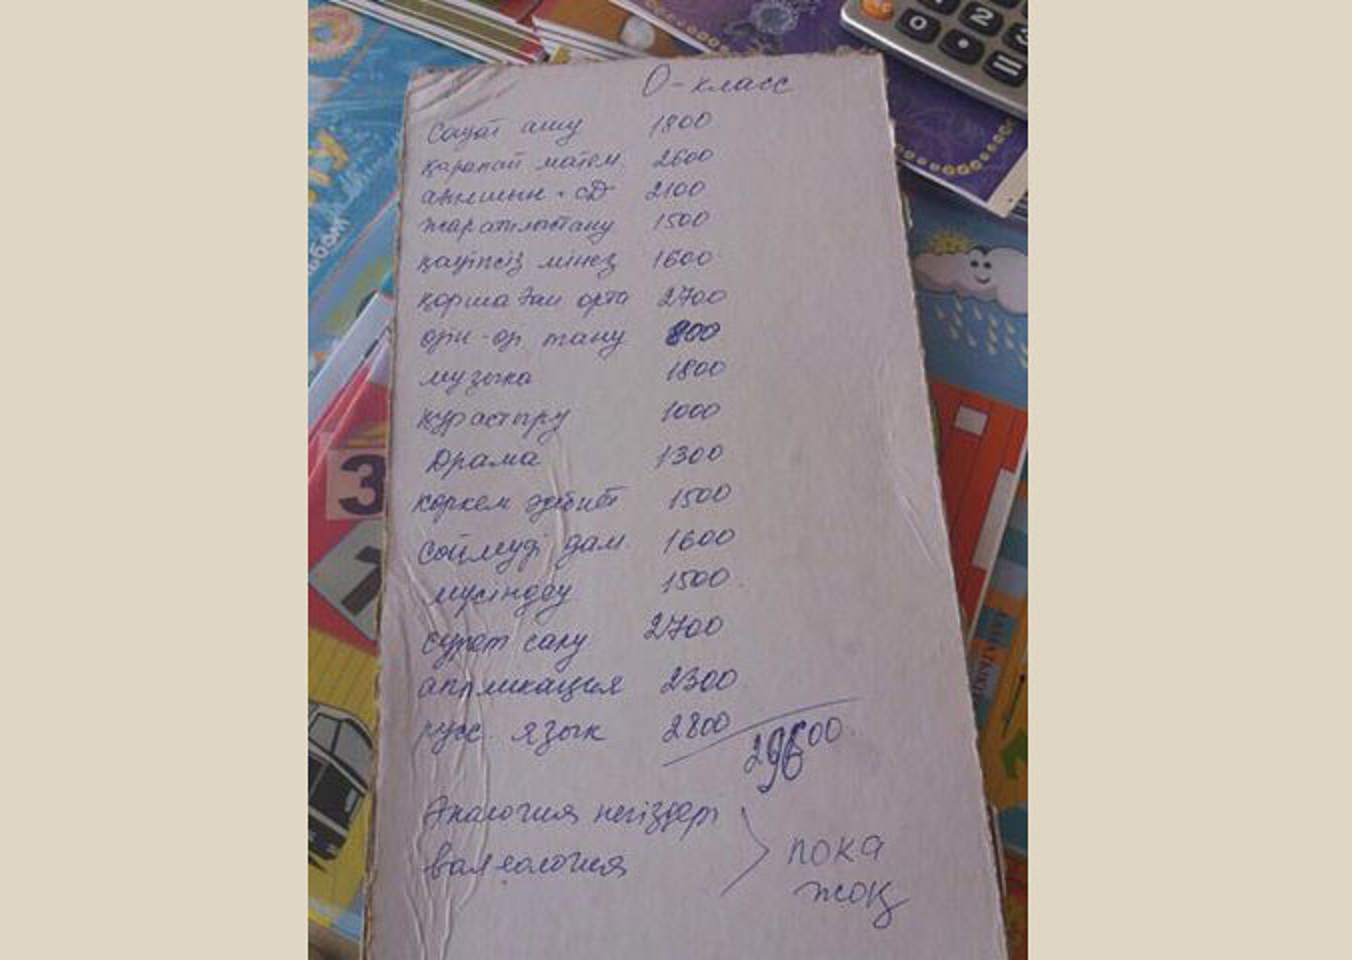 0-класс
Сауат ашу 1800
қарапай матем. 2600
ағылшын + CD 2100
жаратылыстану 1500
қауіпсіз мінез 1600
қоршаған орта 2700
өзін-өзі тану 800
музыка 1800
құрастыру 1000
Драма 1300
көркем әдебиет 1500
Сөйлеуді дам. 1600
мүсіндеу 1500
сурет салу 2700
аппликация 2300
русс. язык 2800
Экология негіздері
валеология
пока
жоқ
3